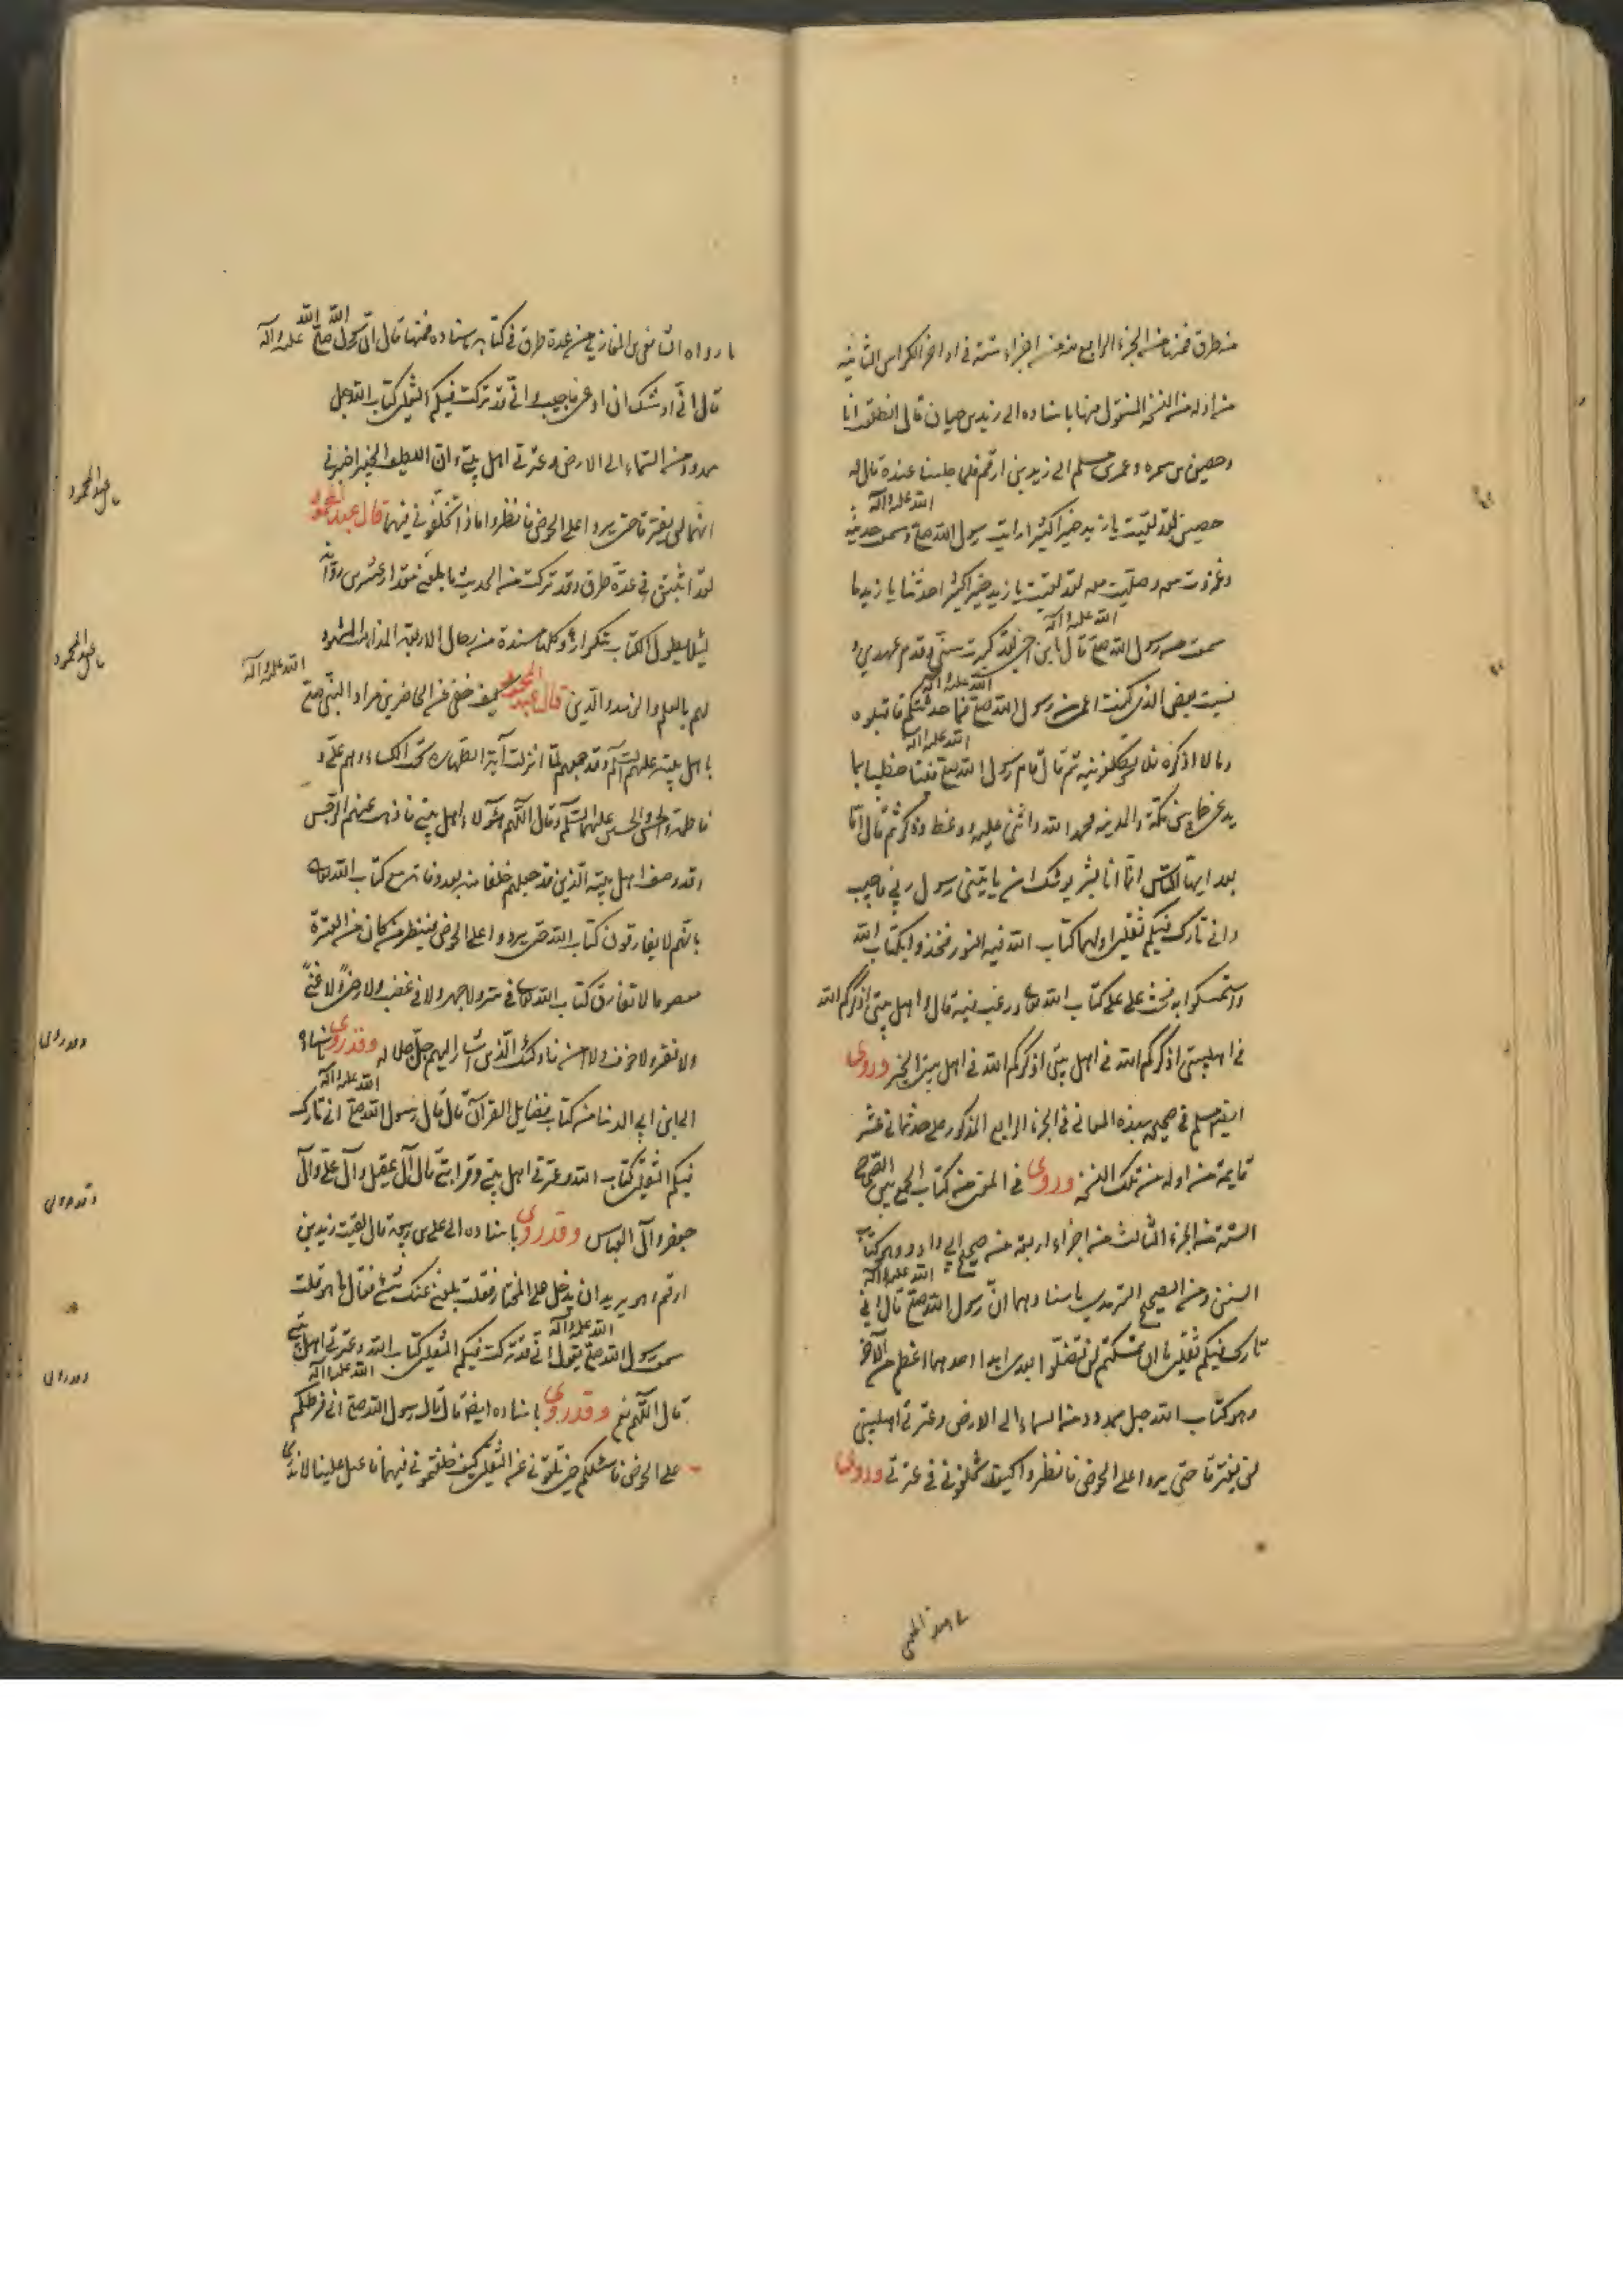 من طرق فمنها من الجزء الرابع منه من اجزاء ستة في اواخر الكراس الثانية
من اوله من النسخة المنقول منها باسناده الى زيد بن حيان قال انطلقت انا
وحصين بن سمره وعمر بن مسلم الى زيد بن ارقم فلما جلسنا عنده قال له
حصين لقد لقيت يا زيد خيرا كثيرا رايت رسول الله صلى الله عليه وآله وسمعت حديثه
وغزوت معه وصليت معه لقد لقيت يا زيد خيرا كثيرا حدثنا يا زيد ما
سمعت من رسول الله صلى الله عليه وآله قال يابن اخي لقد كبرت سني وقدم عهدي و
نسيت بعض الذي كنت اعي من رسول الله صلى الله عليه وآله فما حدثتكم فاقبلوه
وما لا اذكره فلا تكلفونيه ثم قال قام رسول الله صلى الله عليه وآله فينا خطيبا بما
يدعى خما بين مكة والمدينه فحمد الله واثنى عليه ووعظ وذكر ثم قال اما
بعد ايها الناس انما انا بشر يوشك ان ياتيني رسول ربي فاجيب
واني تارك فيكم ثقلين اولهما كتاب الله فيه النور فخذوا بكتاب الله
واستمسكوا به فحث على كتاب الله تعالى ورغب فيه قال واهل بيتي اذكركم الله
في اهلبيتي اذكركم الله في اهل بيتي اذكركم الله في اهل بيتي الخبر وروى
ايضا مسلم في صحيحه بهذه المعاني في الجزء الرابع المذكور على حد ثماني عشر
قايمة من اوله من تلك النسخه وروى في المعنى من كتاب الجمع بين الصحاح
الستة من الجزء الثالث من اجزاء اربعة من صحيح ابي داود وهو كتاب
السنن ومن الصحيح الترمدي باسنادهما ان رسول الله صلى الله عليه وآله قال اني
تارك فيكم ثقلين ما ان تمسكتم لن تضلوا بعدي ابدا احدهما اعظم من الآخر
وهو كتاب الله حبل ممدود من السماء الى الارض وعترتي اهلبيتي
لن يفترقا حتى يردا على الحوض فانظروا كيف تخلفوني في عترتي وروى
ما رواه الشافعي ابن المغازلي من عدة طرق في كتابه باسناده فمنها قال ان رسول الله صلى الله عليه وآله
قال اني اوشك ان ادعى فاجيب واني قد تركت فيكم الثقلين كتاب الله حبل
ممدود من السماء الى الارض وعترتي اهل بيتي وان اللطيف الخبير اخبرني
انهما لن يفترقا حتى يردا على الحوض فانظروا ماذا تخلفوني فيهما قال عبد المحمود
لقد اثبتت في عدة طرق وقد تركت من الحديث ما بلغني مقدار عشرين رواية
ليلا يطول الكتاب بتكراره وكلها مسندة من رجال الاربعة المذاهب المشهود
لهم بالعلم والزهد والدين قال عبد المحمود كيف خفي عن الحاضرين مراد النبي صلى الله عليه وآله
باهل بيته عليهم السلام وقد جمعهم لما انزلت آية الطهارة تحت الكساء وهم علي و
فاطمة والحسن والحسين عليهم السلام وقال اللهم هؤلاء اهل بيتي فاذهب عنهم الرجس
وقد وصف اهل بيته الذين قد جعلهم خلفا منه بعد وفاته مع كتاب الله تعالى
بانهم لا يفارقون كتاب الله حتى يردوا على الحوض فلينظر من كان من العترة
معصوما لا تفارق كتاب الله تعالى في سر ولا جهر ولا في غضب ولا رضى ولا غنى
ولا فقر ولا خوف ولا امن فاولئك الذين اشار اليهم جل جلاله وقد روى
الى ابن ابي الدنيا من كتاب فضايل القرآن قال قال رسول الله صلى الله عليه وآله اني تارك
فيكم الثقلين كتاب الله وعترتي اهل بيتي وقرابتي قال آل عقيل وآل علي وآل
جعفر وآل العباس وقد روى باسناده الى علي بن ربيعة قال لقيت زيد بن
ارقم وهو يريد ان يدخل على المختار فقلت بلغني عنك شئ فقال ما هو قلت
سمعت رسول الله صلى الله عليه وآله يقول اني قد تركت فيكم الثقلين كتاب الله وعترتي اهل بيتي
قال اللهم نعم وقد روى باسناده ايضا قال قال رسول الله صلى الله عليه وآله اني فرطكم
على الحوض فاسئلكم حين تلقوني عن الثقلين كيف خلفتموني فيهما فاعتل علينا لا ندري